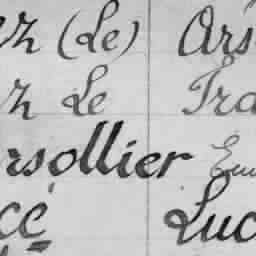 (Le) Ars
Le Fra
rsollier Em
cé Luc